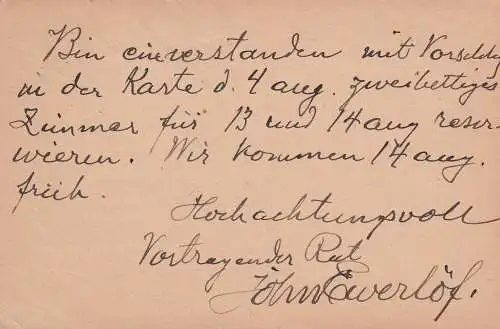 Bin einverstanden mit Vorschlg
in der Karte d. 4 aug. zweibettiges
Zimmer für 13 und 14 aug reser-
wieren. Wir kommen 14 aug.
früh.
Hochachtungsvoll
Vortragender Rat
John Ewerlöf.